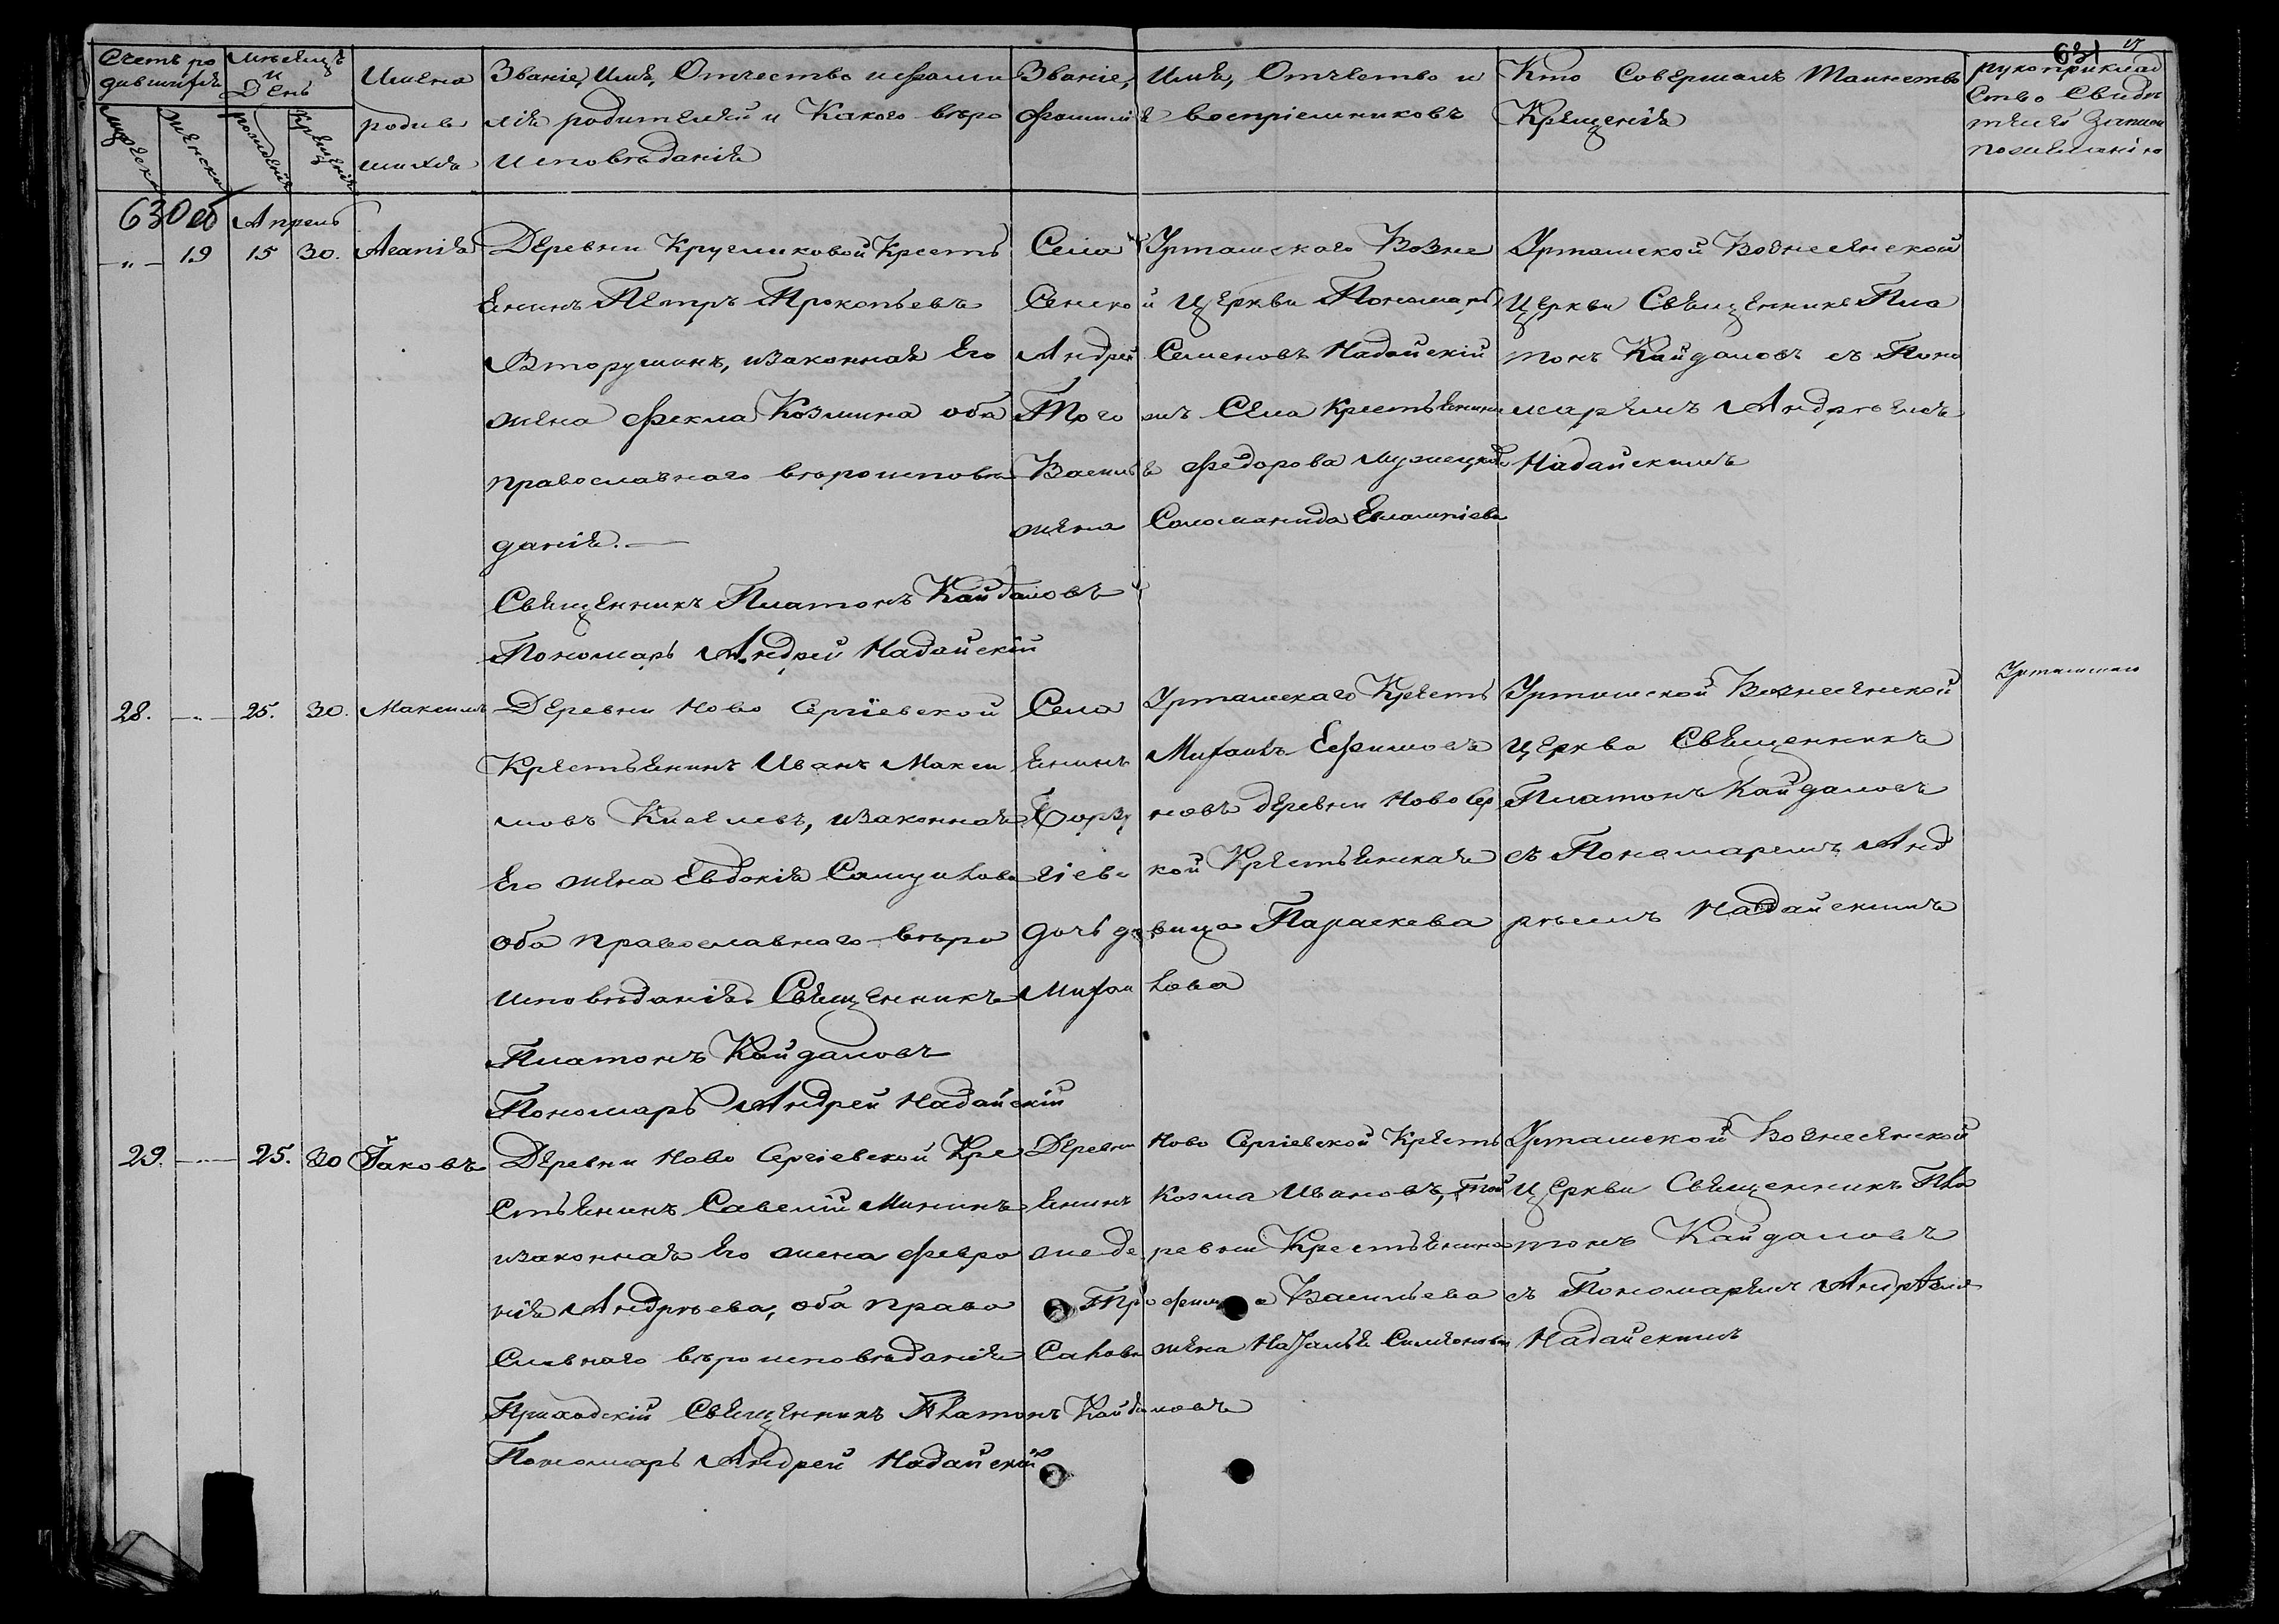 631
Счетъ ро
дившихся
мужеска
женска
Мѣсяцъ
и
День
рожденія
крещенія
Имена
родив
шихся
Званіе, Имя, Отчество и фами
лія родителей и Какого вѣро
исповѣданія
Званіе, Имя, Отчество и
фамилія воспріемниковъ
Кто Совершалъ Таинство
Крещенія
рукоприклад
ство Свидѣ
телей записи
по желанію
630 об
Апрель
—„— 19 15 30. Агапія
Деревни Кругликовой Кресть
янинъ Петръ Прокопьевъ
Вторушинъ, изаконная Его
жена Фекла Козмина оба
православнаго вѣроисповѣ
данія.—
Священникъ Платонъ Кайдаловъ
Пономарь Андрей Надайскій
Села Урташскаго Возне
Сенской церкви Пономарь
Андрей Семеновъ Надайскій
Того жъ Села Крестьянина
Василья Федорова
жена Соломанида
Урташской Вознесенской
церкви Священникъ Пла
тонъ Кайдаловъ съ Поно
маремъ Андреемъ
Надайскимъ
28. —„— 25. 30. Максимъ
Деревни Ново Сергіевской
Крестьянинъ Иванъ Макси
мовъ Киселевъ, изаконная
Его жена Евдокія Самуилова
оба православнаго вѣро
исповѣданія. Священникъ
Платонъ Кайдаловъ
Пономарь Андрей Надайскій
Села Урташскаго Кресть
янинъ Михаилъ Ефимовъ
деревни Ново Сер
гіевской Крестьянская
дочь дѣвица Параскева
Михаилова
Урташской Вознесенской
церкви Священникъ
Платонъ Кайдаловъ
съ Пономаремъ Анд
реемъ Надайскимъ
Урташскаго
29. —„— 25. 30 Іаковъ
Деревни Ново Сергіевской Кре
стьянинъ Савелій Мининъ
изаконная Его жена Февро
нія Андреева, оба право
славнаго вѣроисповѣданія
Приходскій Священникъ Платонъ Кайдаловъ
Пономарь Андрей Надайскій
Деревни Ново Сергіевской Кресть
янинъ Козма Ивановъ, той
же деревни Крестьянина
Трофима Васильева
жена Наталья Симеонова
Урташской Вознесенской
Церкви Священникъ Пла
тонъ Кайдаловъ
съ Пономаремъ Андреемъ
Надайскимъ